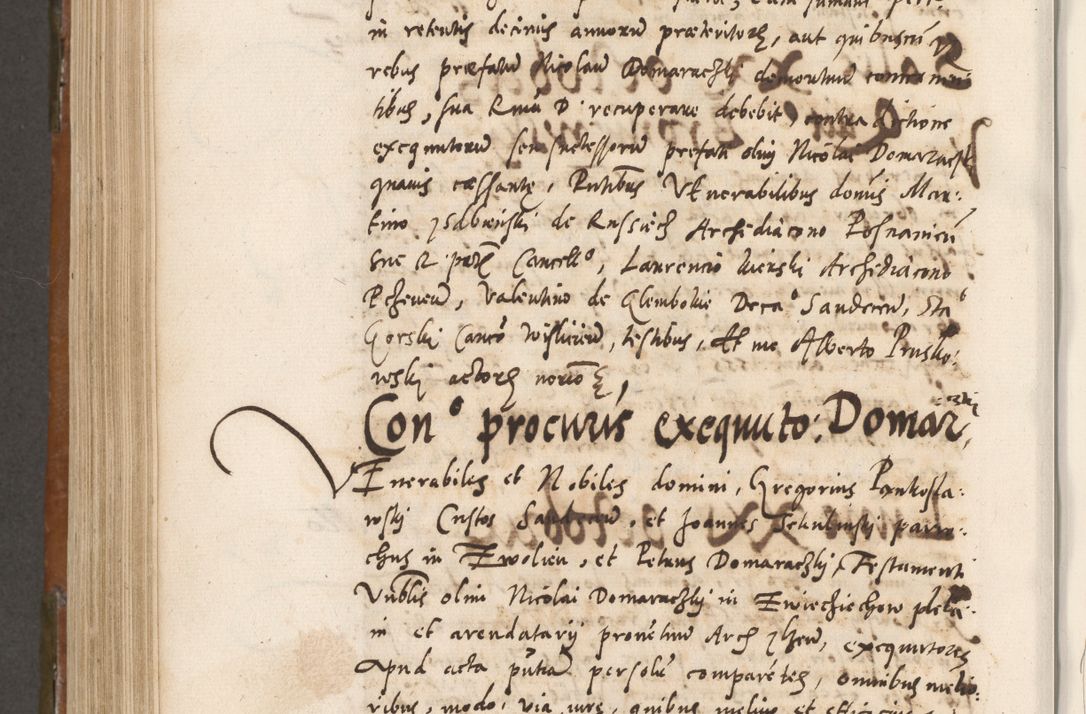 in retentis decimis annorum præteritorum, aut quibuscun
rebus præfatum Nicolaum Domaraczki demortuum concernen
tibus, sua Rma D. recuperare debebit, contradictione
exequutorum seu successorum prefati olim Nicolai Domaraczki
quavis cessante, Pntibus Venerabilibus domis Mar:
tino Isdbienski de Russiecz Archediacono Posnanien
sue R. ptis Cancello, Laurencio Archediacono
Valentino de Glembokie Deca° Sandomir, Sta
Gorski Canco Wislicien, testibus, Et me Alberto Prusko:
wski actorum norio
Con° procuris exequuto: Domar,
Venerabiles et Nobiles domini, Gregorius Penkosla:
wski Custos Sandomir, et Joannes parro:
chus in Zwolien, et Petrus Domaraczkij, Testamenti
Vnblis olim Nicolai Domaraczkij in Zwiechiechow pleba:
ni et arendatarij proventuum Arch, exequutores
Apud acta pntia persolr comparentes, omnibus melio:
ribus, modo, via, iure, quibus melius et efficacius